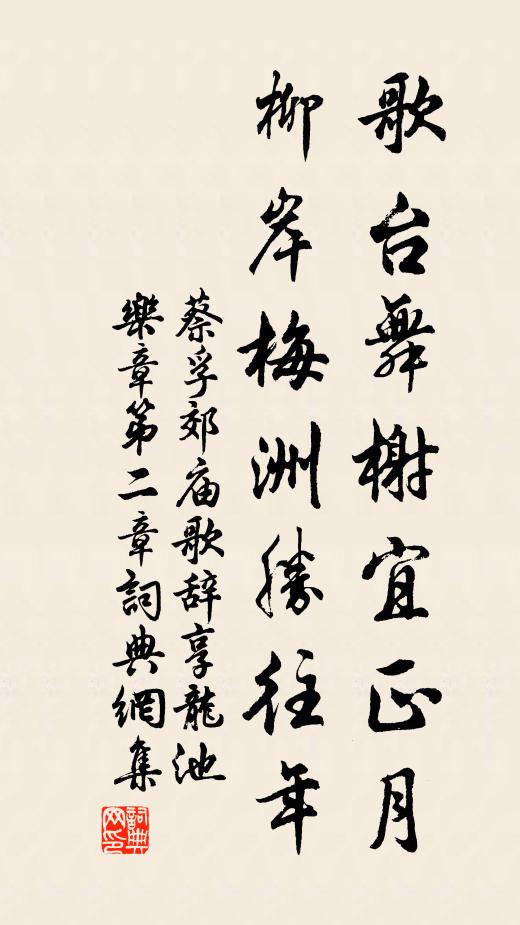 歌台舞榭宜正月
柳岸梅洲勝往年
蔡孚郊庙歌辞享龍池
樂章第二章詞典網集
詞典
网印